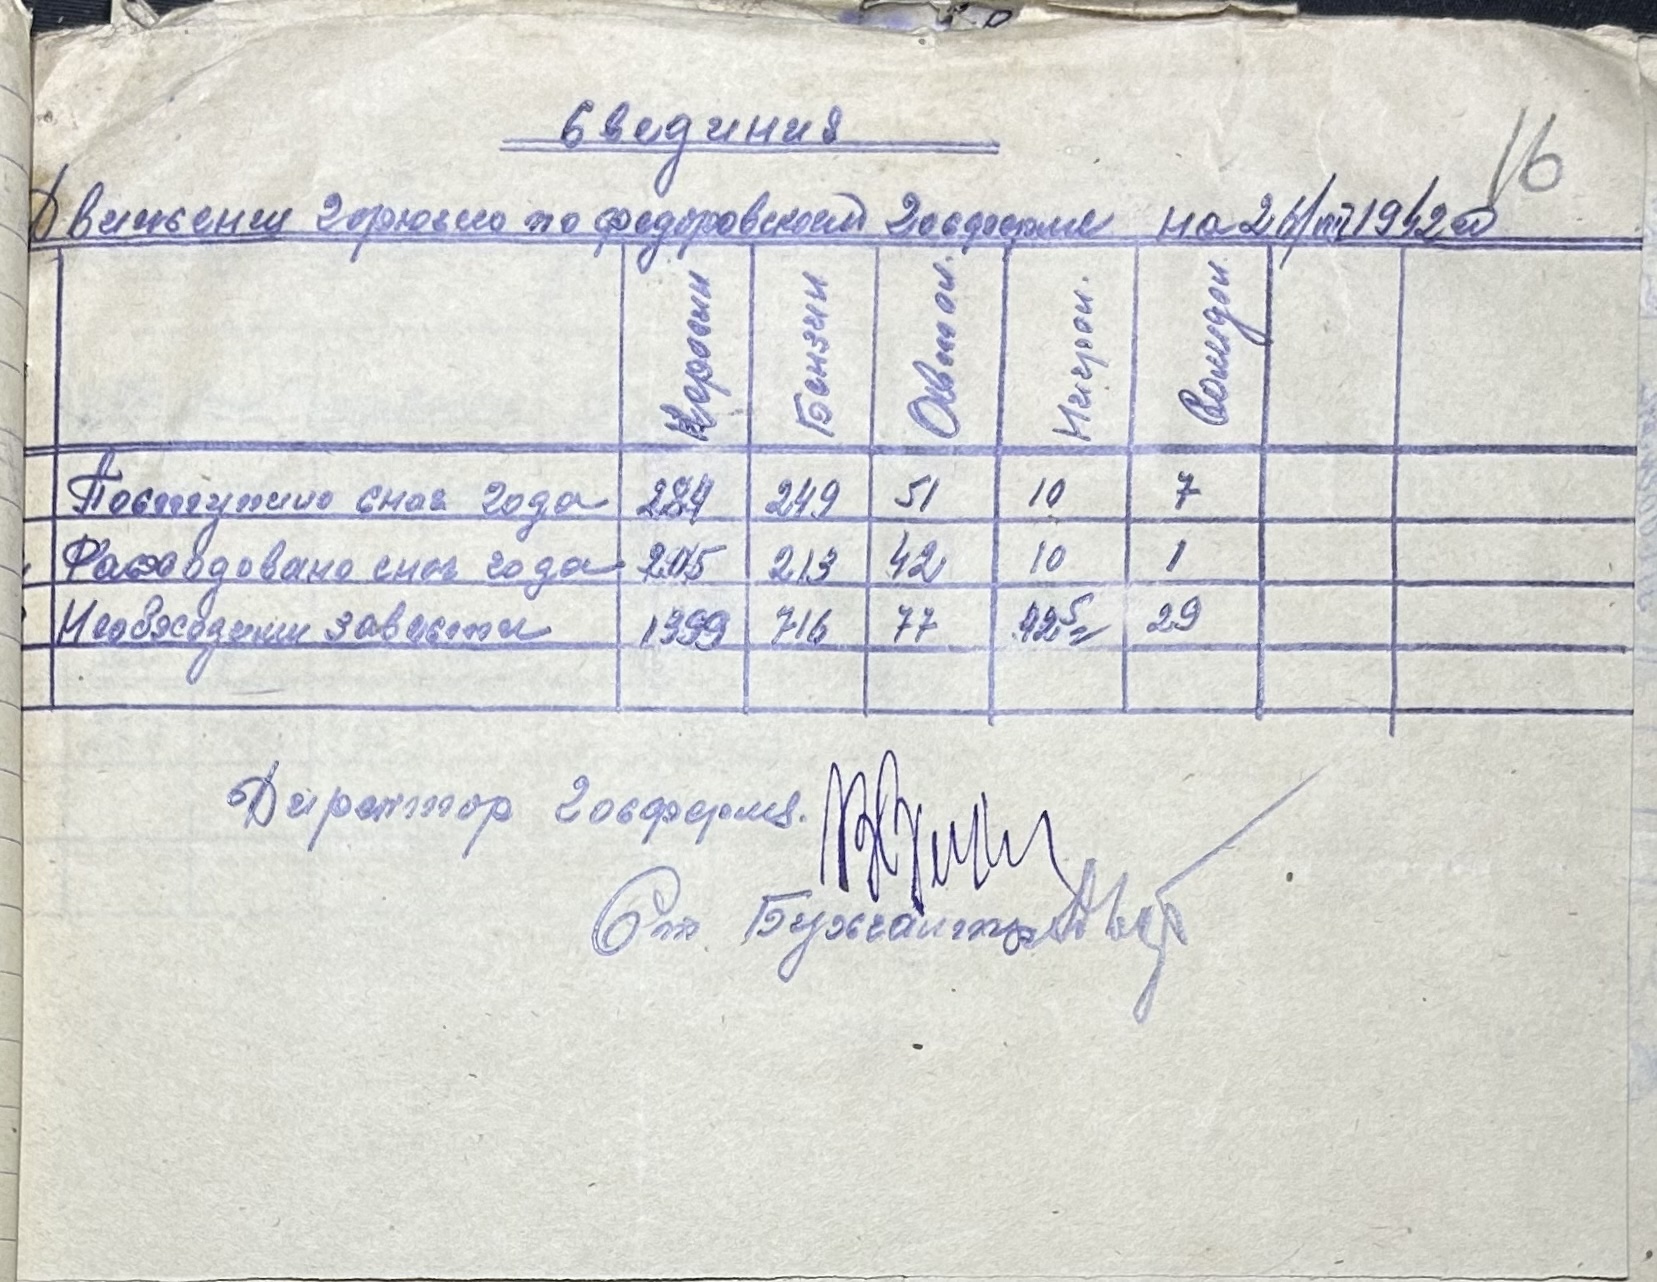 Свединия
16
Движении горючего по федоровской Госферме на 26/III 1942 г
Керосин Бензин Автол. Нигрол. Солидол
Поступило с нач года 284 249 51 10 7
Расходовано с нач года 205 213 42 10 1
Необходими завести 1399 716 77 29
Директор Госфермы.
Ст Бухгалтер